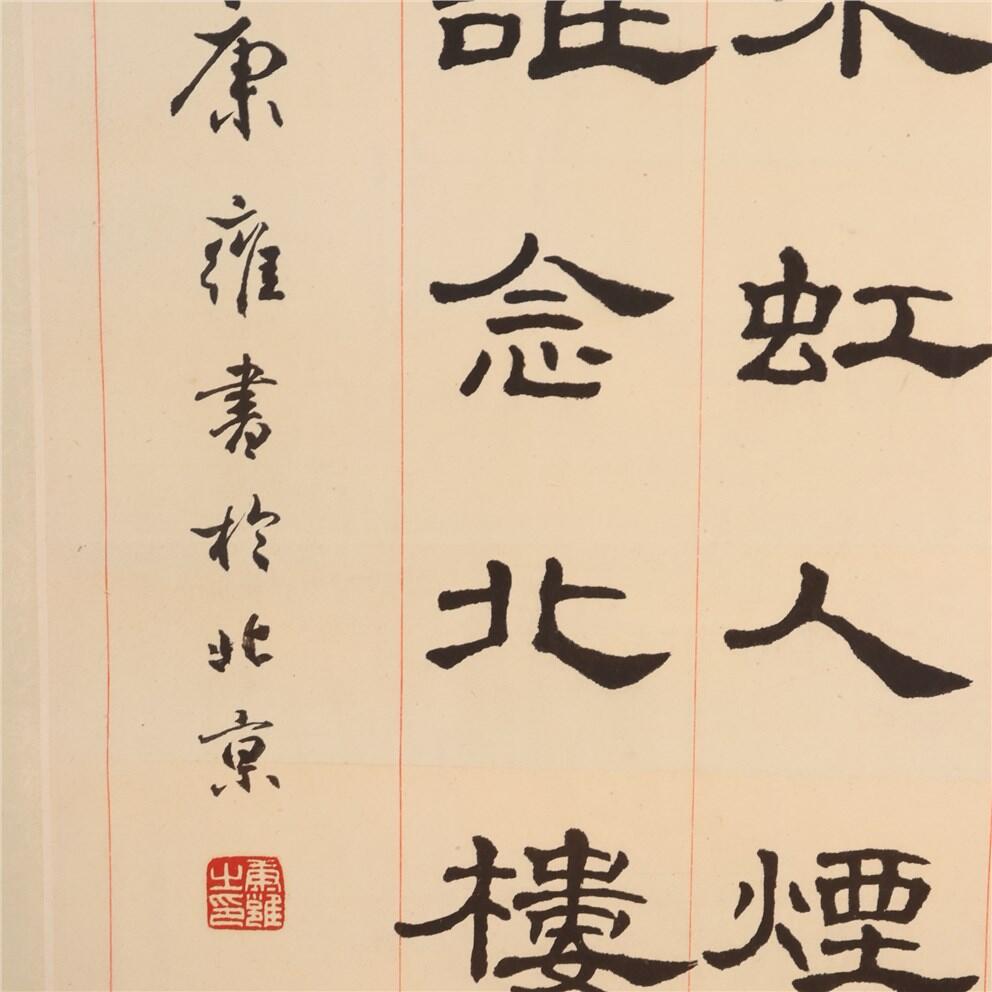 虹人煙
誰念北樓
康雍書於北京
康雍之印